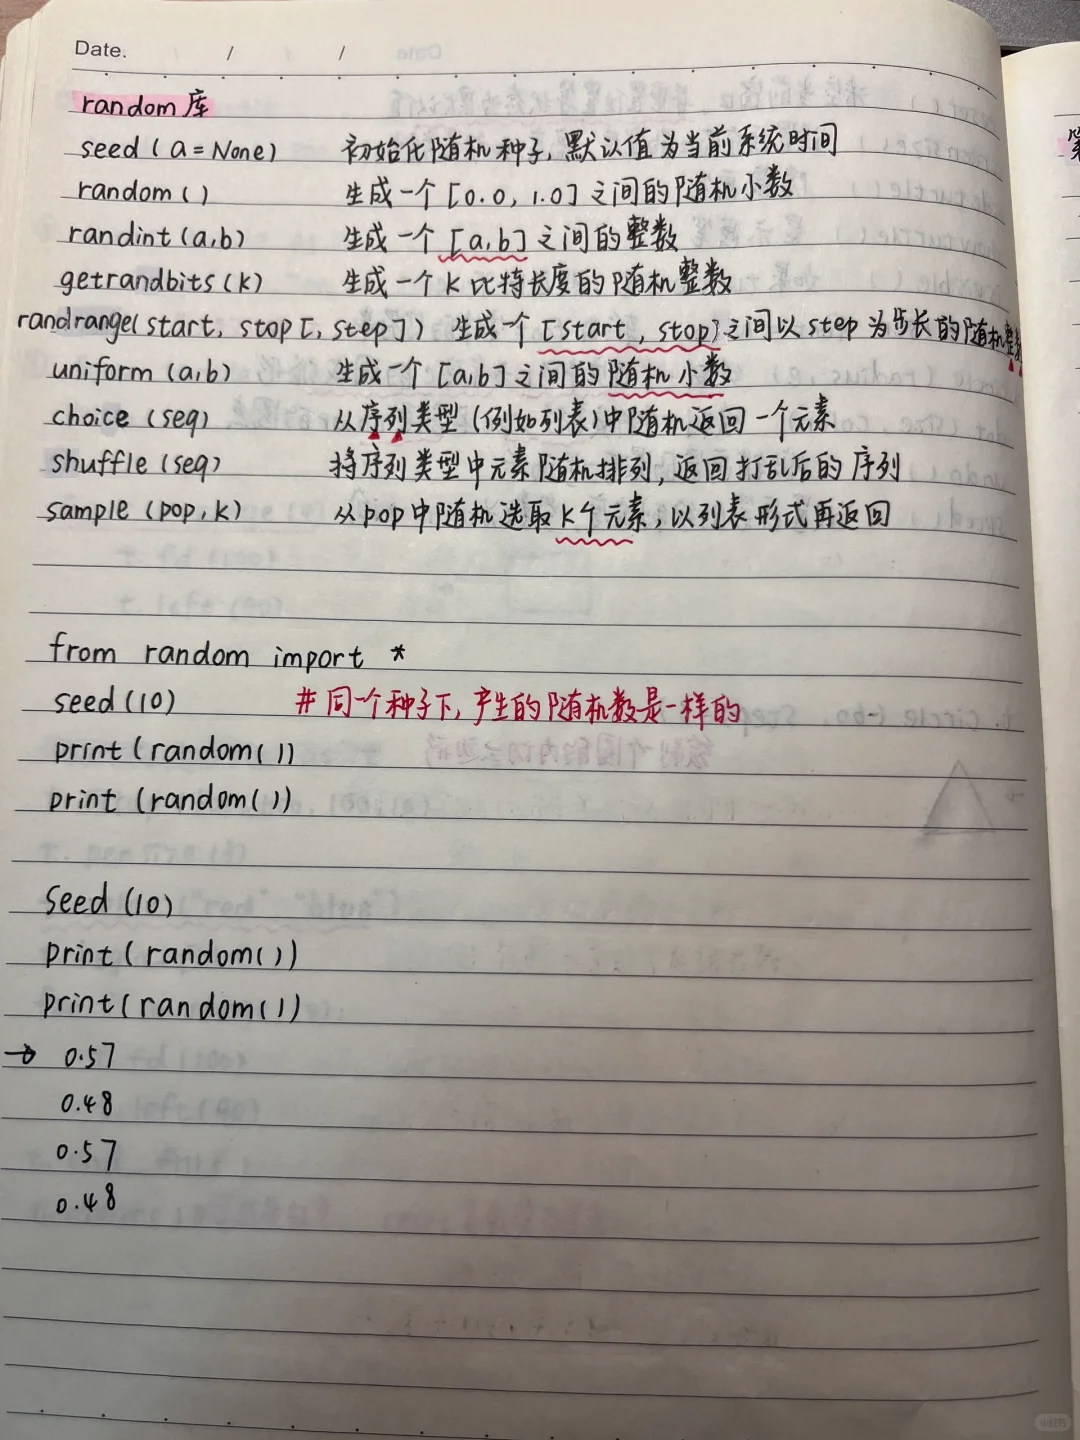 Date. / /
random 库
seed (a = None) 初始化随机种子, 默认值为当前系统时间
random () 生成一个 [0.0, 1.0] 之间的随机小数
randint (a,b) 生成一个 [a,b] 之间的整数
getrandbits (k) 生成一个 K 比特长度的随机整数
randrange( start, stop [, step] ) 生成一个 [start, stop) 之间以 step 为步长的随机整数
uniform (a,b) 生成一个 [a,b] 之间的随机小数
choice (seq) 从序列类型 (例如列表) 中随机返回一个元素
shuffle (seq) 将序列类型中元素随机排列, 返回打乱后的序列
sample (pop, k) 从 pop 中随机选取 K个元素, 以列表形式再返回
from random import *
seed (10) # 同一个种子下, 产生的随机数是一样的
print (random())
print (random())
seed (10)
print ( random())
print ( random())
→ 0.57
0.48
0.57
0.48
小红书